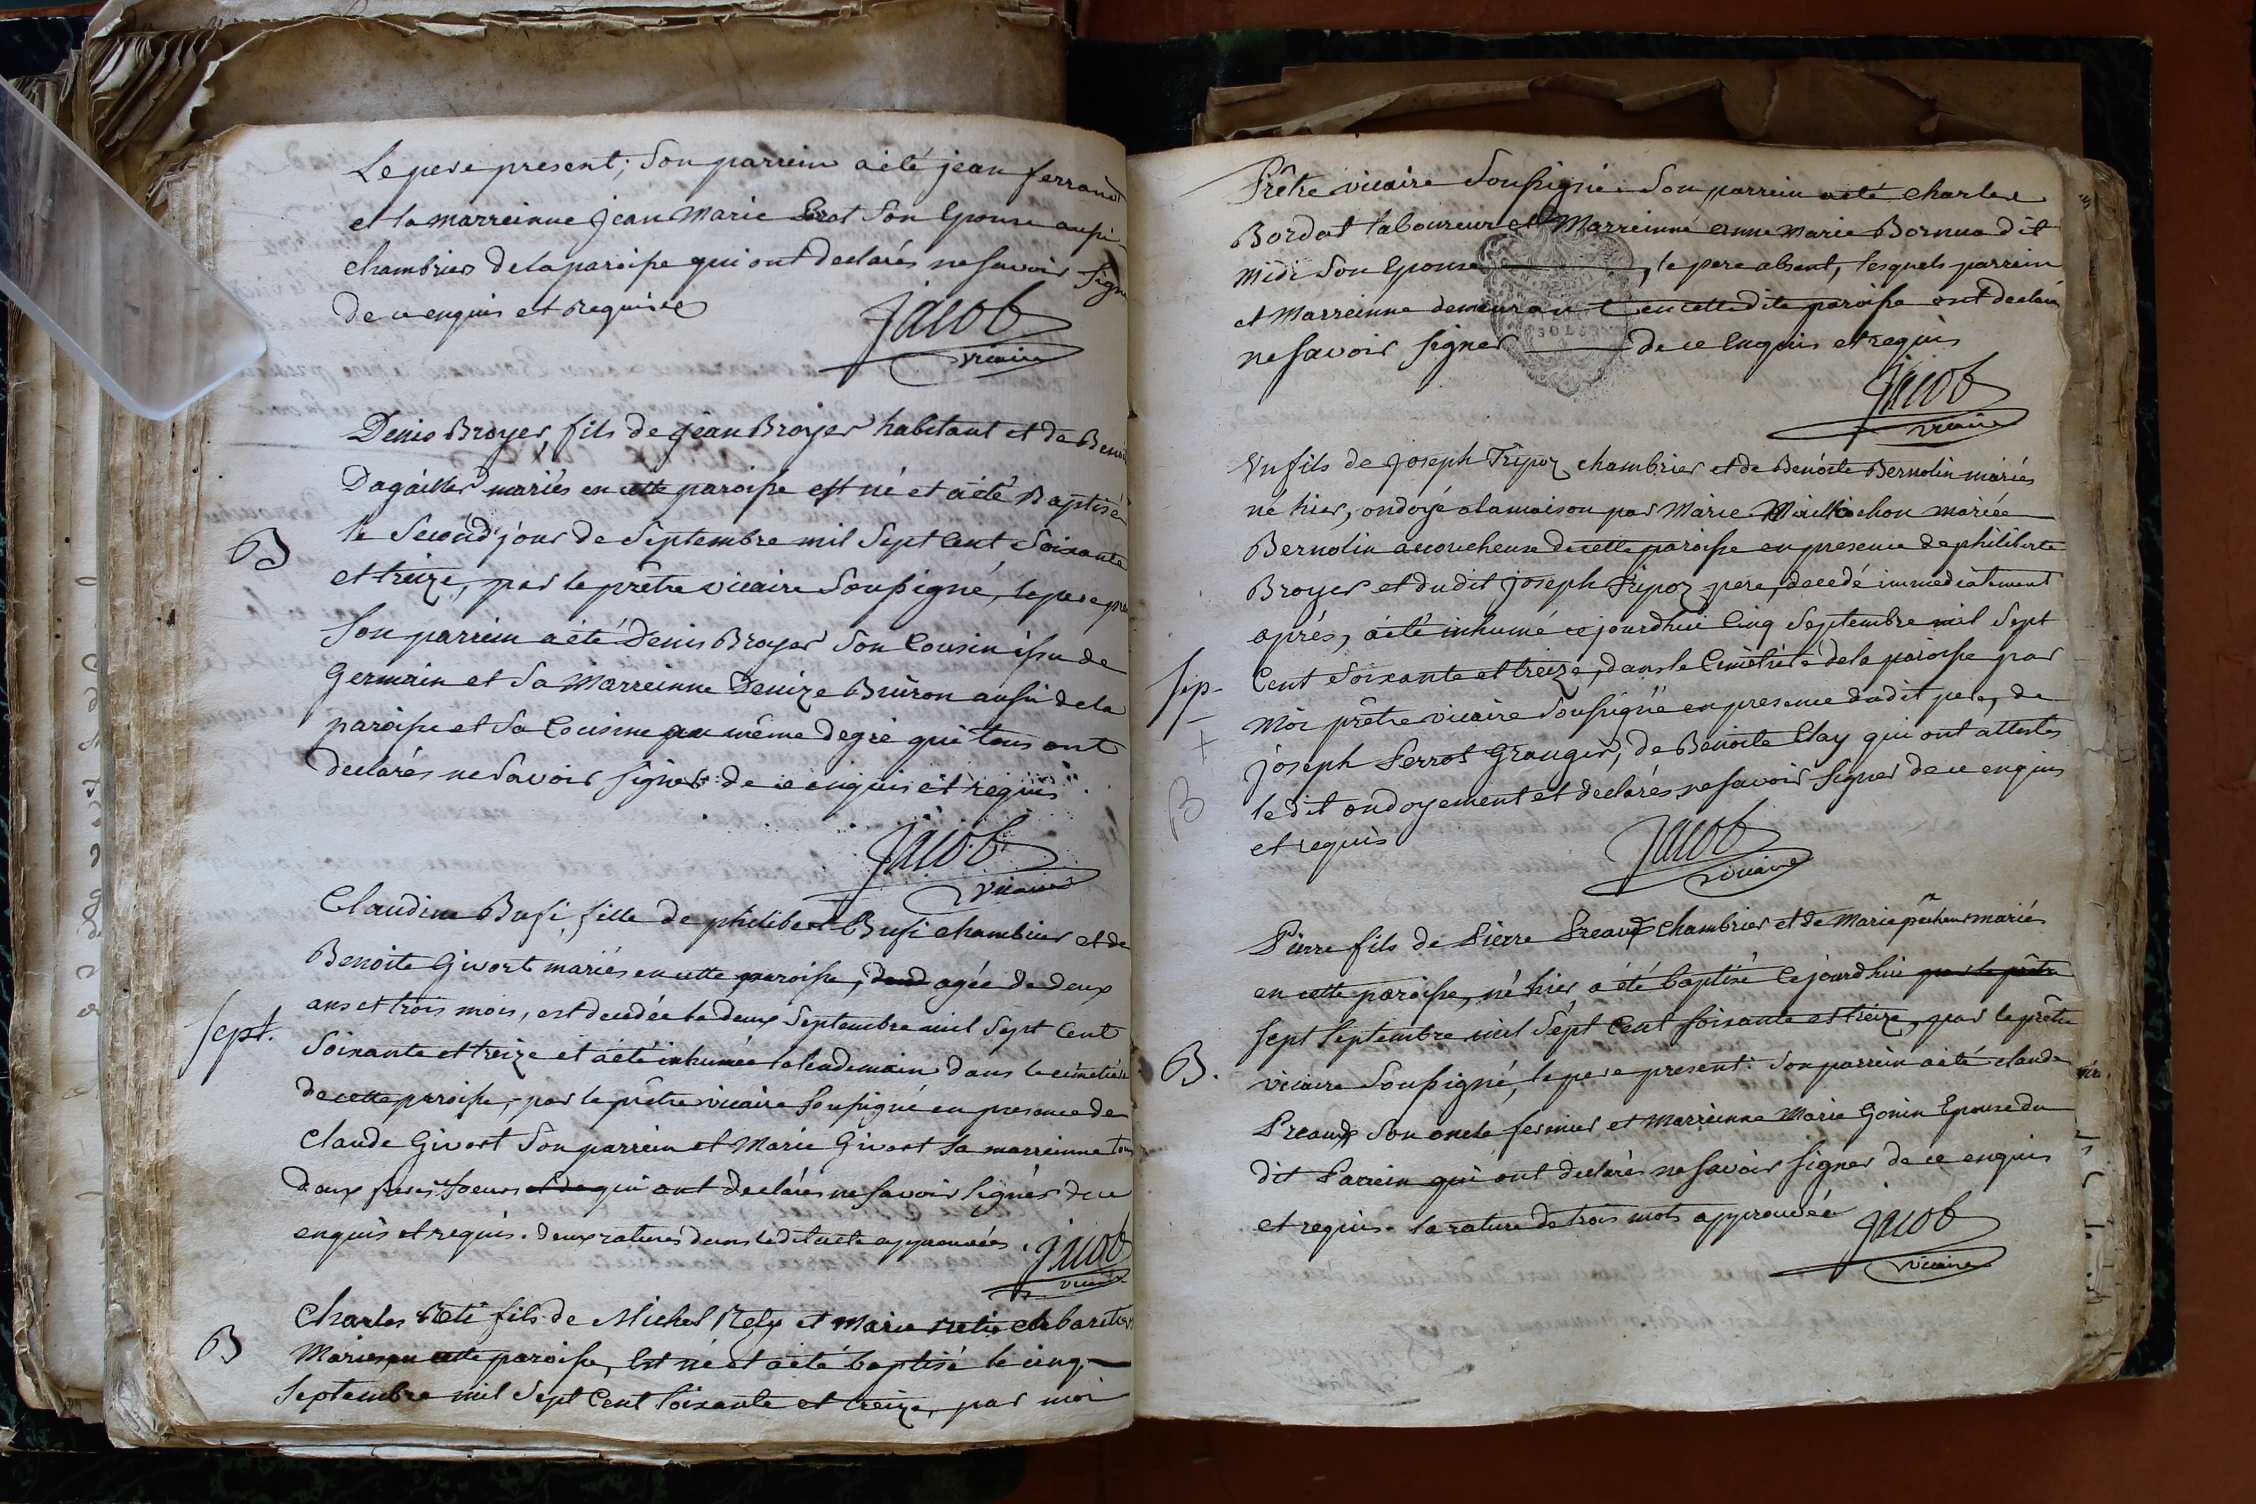 Le pere présent; Son parrein a été jean ferrand
et la marreinne jean Marie Son Epouse aussi
chambrier de la paroisse qui ont déclarés ne savoir signer
de ce enquis et requise
Jacob
vicaire
Denis Broyer, fils de jean Broyer habitant et de Benoi
Dagailler mariés en cette paroisse est né et a été Baptisé
B
le Second jour de Septembre mil Sept Cent Soixante
et treize, par le prêtre vicaire Soussigné, le pere
Son parrein a été Denis Broyer Son Cousin issu de
Germain et Sa Marreinne Denize Buiron aussi de la
paroisse et Sa Cousine au même degré qui tous ont
declarés ne Savoir signer de ce enquis et requis
Jacob
vicaire
Claudine Busi, fille de philibert Busi chambrier et de
Benoite Givort mariés en cette paroisse, agée de deux
ans et trois mois, est decedée le deux Septembre mil Sept Cent
Sept.
Soixante et treize et a été inhumée le lendemain dans le cimetiere
de cette paroisse, par le prêtre vicaire Soussigné en presence de
Claude Givort Son parrein et Marie Givort Sa marreinne tous
deux freres Soeurs et de qui ont declarés ne Savoir Signer de ce
enquis et requis. deux ratures dans ledit acte approuvées.
Jacob
vicaire
Charles Reti fils de Michel Rety et Marie
B
Mariés en cette paroisse, Est né et a été baptisé le cinq
Septembre mil Sept Cent Soixante et treize, par moi
Prêtre vicaire Soussigné. Son parrein a été Charles
Bordat laboureur et Marreinne anne Marie Bornua dit
Midi Son Epouse, le pere absent, lesquels parrein
et Marreinne demeurant en cette dite paroisse ont declaré
ne savoir signer de ce Enquis et requis
Jacob
vicaire
Un fils de Joseph Tripoz chambrier et de Benoite Bernolin mariés
né hier, ondoyé a la maison par Marie mariée
Bernolin acoucheuse de cette paroisse en presence de philiberte
Broyer et dudit Joseph Tripoz pere, decedé immediatement
aprés, a été inhumé ce jourdhui Cinq Septembre mil Sept
Sep-
Cent Soixante et treize, dans le Cimetière de la paroisse par
Moi prêtre vicaire Soussigné en presence dudit pere, de
+
Joseph Perrot Granger, de Benoite Clay qui ont attestés
B
le dit ondoyement et declarés ne savoir Signer de ce enquis
et requis
Jacob
vicaire
Pierre fils de Pierre Preaud chambrier et de Marie mariés
en cette paroisse, né hier a été baptisé Ce jourdhui par le prêtre
sept Septembre mil Sept Cent soixante et treize, par le prêtre
B.
vicaire Soussigné, le pere present. Son parrein a été claude
Preaud Son oncle fermier et Marreinne Marie Gonin Epouse du
dit Parrein qui ont declarés ne Savoir signer de ce enquis
et requis. la rature de trois mots approuvée
Jacob
vicaire